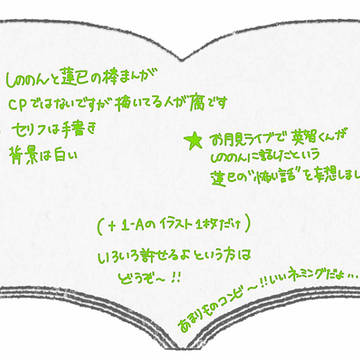 しののんと蓮巳の棒まんが
CPではないですが描いてる人が腐です
セリフは手書き
背景は白い
★ お月見ライブで英智くんが
しののんに話したという
蓮巳の"怖い話"を妄想しまし
(+1-Aのイラスト1枚だけ)
いろいろ許せるよという方は
どうぞ〜!!
あまりものコンビ〜!!いいネーミングだよ...